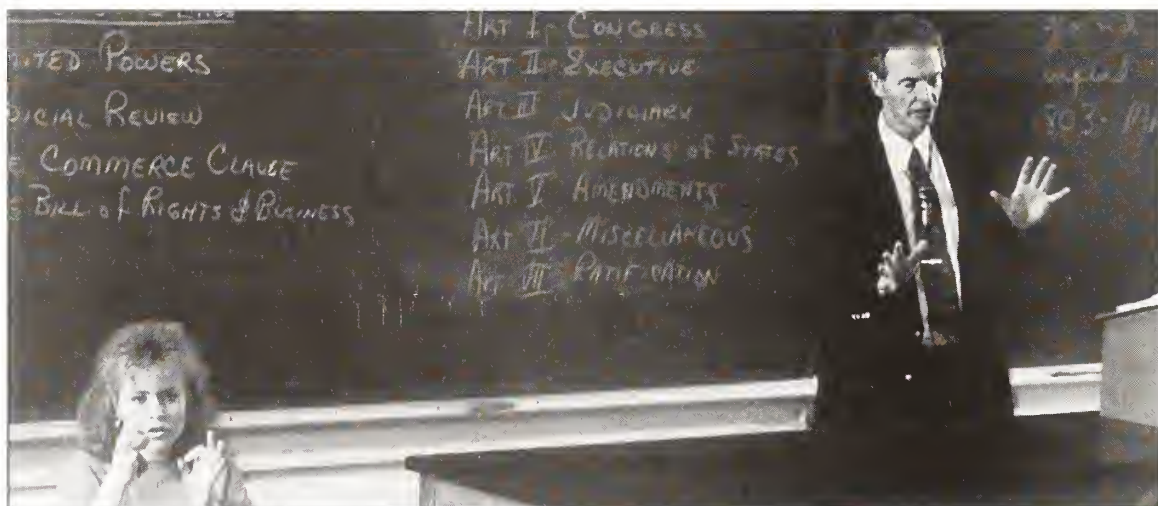 POWERS
REVIEW
COMMERCE CLAUSE
BILL of RIGHTS & BUSINESS
ART I - CONGRESS
ART II - EXECUTIVE
ART III JUDICIARY
ART IV RELATIONS OF STATES
ART V AMENDMENTS
ART VI - MISCELLANEOUS
ART VII - RATIFICATION
803